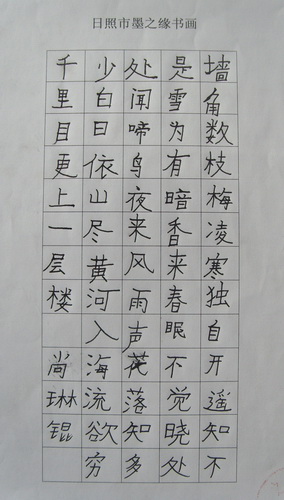 日照市墨之缘书画
墙角数枝梅凌寒独自开遥知不
是雪为有暗香来春眠不觉晓处
处闻啼鸟夜来风雨声花落知多
少白日依山尽黄河入海流欲穷
千里目更上一层楼 尚琳锟